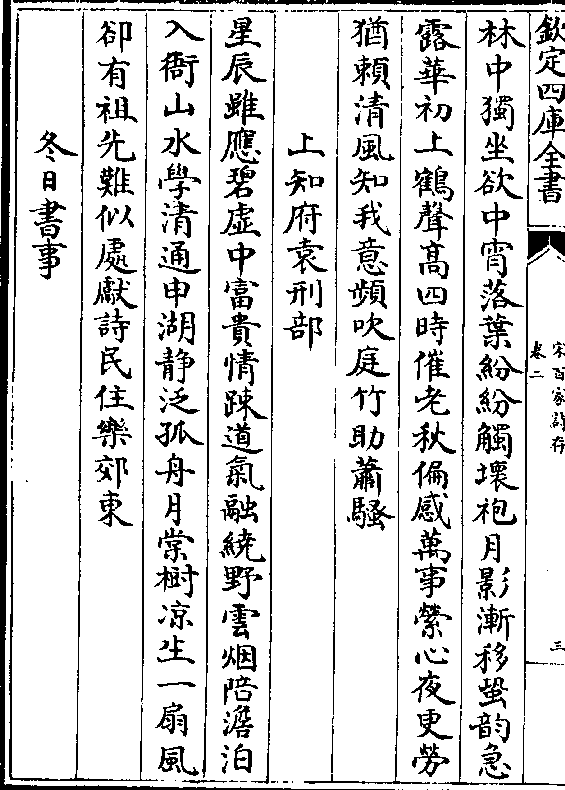 欽定四庫全書
宋百家詩存
卷二
三
林中獨坐欲中宵落葉紛紛觸壞袍月影漸移蛩韵急
露華初上鶴聲髙四時催老秋偏感萬事縈心夜更勞
猶賴清風知我意頻吹庭竹助蕭騷
上知府袁刑部
星辰雖應碧虚中富貴情踈道氣融繞野雲烟陪澹泊
入衙山水學清通申湖静泛孤舟月棠樹凉生一扇風
卻有祖先難似處獻詩民住樂郊東
冬日書事